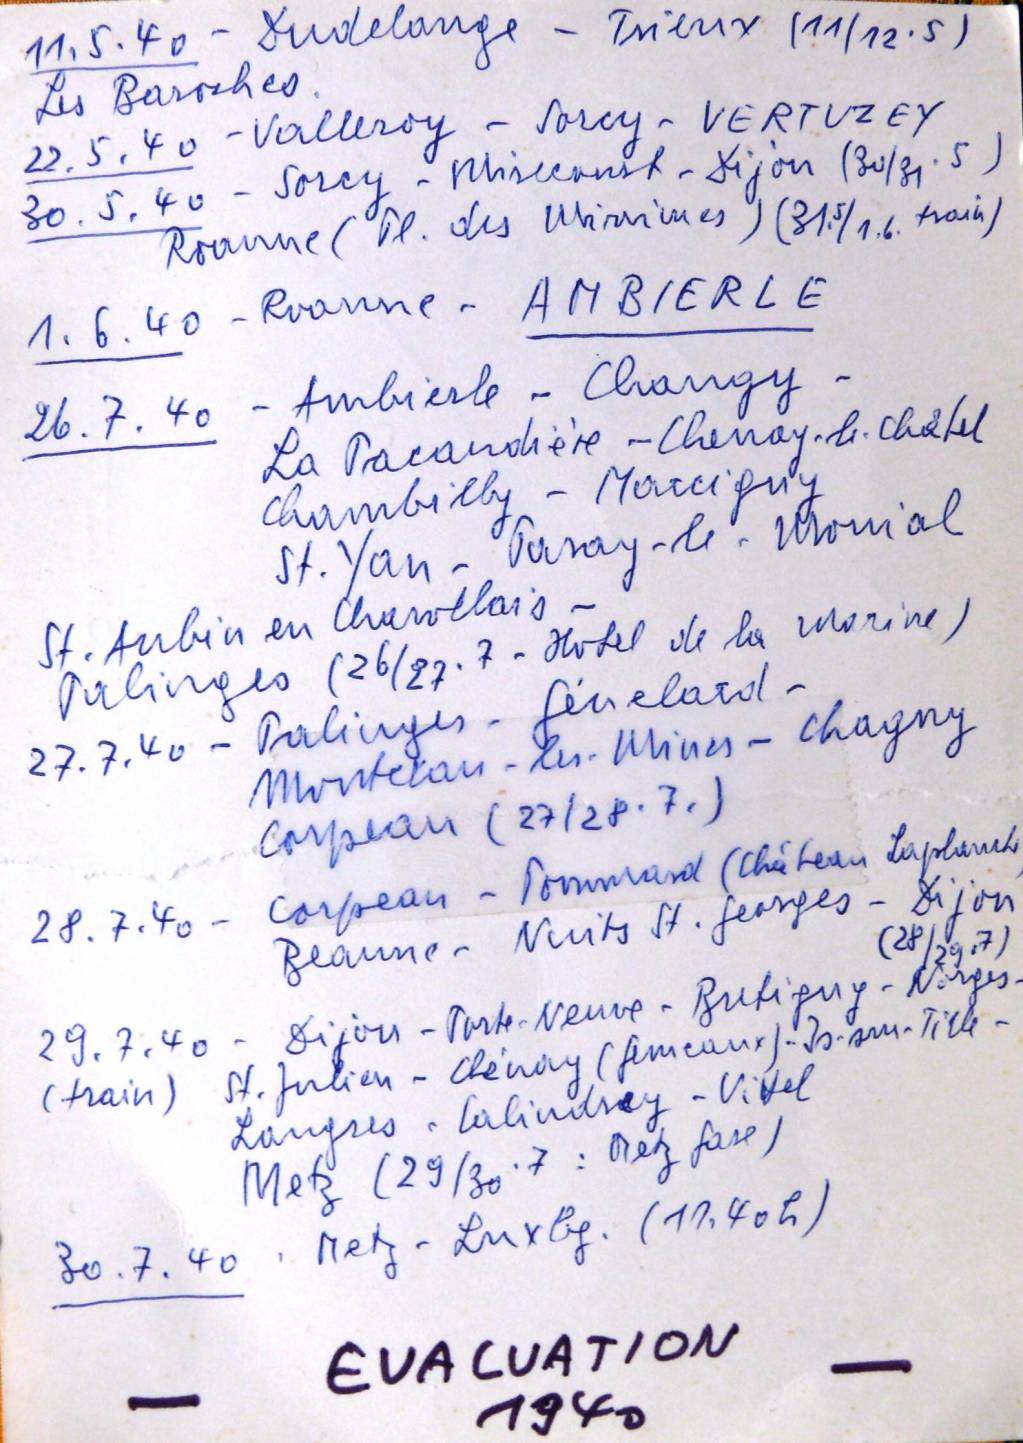 11.5.40 - Dudelange - Trieux (11/12.5)
Les Baroches.
22.5.40 - Valleroy - Sorcy - VERTUZEY
30.5.40 - Sorcy - Mirecourt - Dijon (30/31.5)
Roanne (Pl. des Minimes) (31.5/1.6. train)
1.6.40 - Roanne - AMBIERLE
26.7.40 - Ambierle - Changy -
La Pacaudière - Chenay-le-Châtel
Chambilly - Marcigny
St. Yan - Paray-le-Monial
St. Aubin en Charollais -
Palinges (26/27.7 - Hotel de la marine)
27.7.40 - Palinges - Génelard -
Montceau-les-Mines - Chagny
Corpeau (27/28.7.)
28.7.40 - Corpeau - Pommard (Château Laplanche)
Beaune - Nuits St. Georges - Dijon
(28/29.7)
29.7.40 - Dijon - Porte-Neuve - Bretigny - Norges -
(train) St. Julien - Chénay (Gemeaux) - Is-sur-Tille -
Langres - Calindrey - Vittel
Metz (29/30.7 : Metz gare)
30.7.40. Metz - Luxbg. (11.40h)
EVACUATION
1940